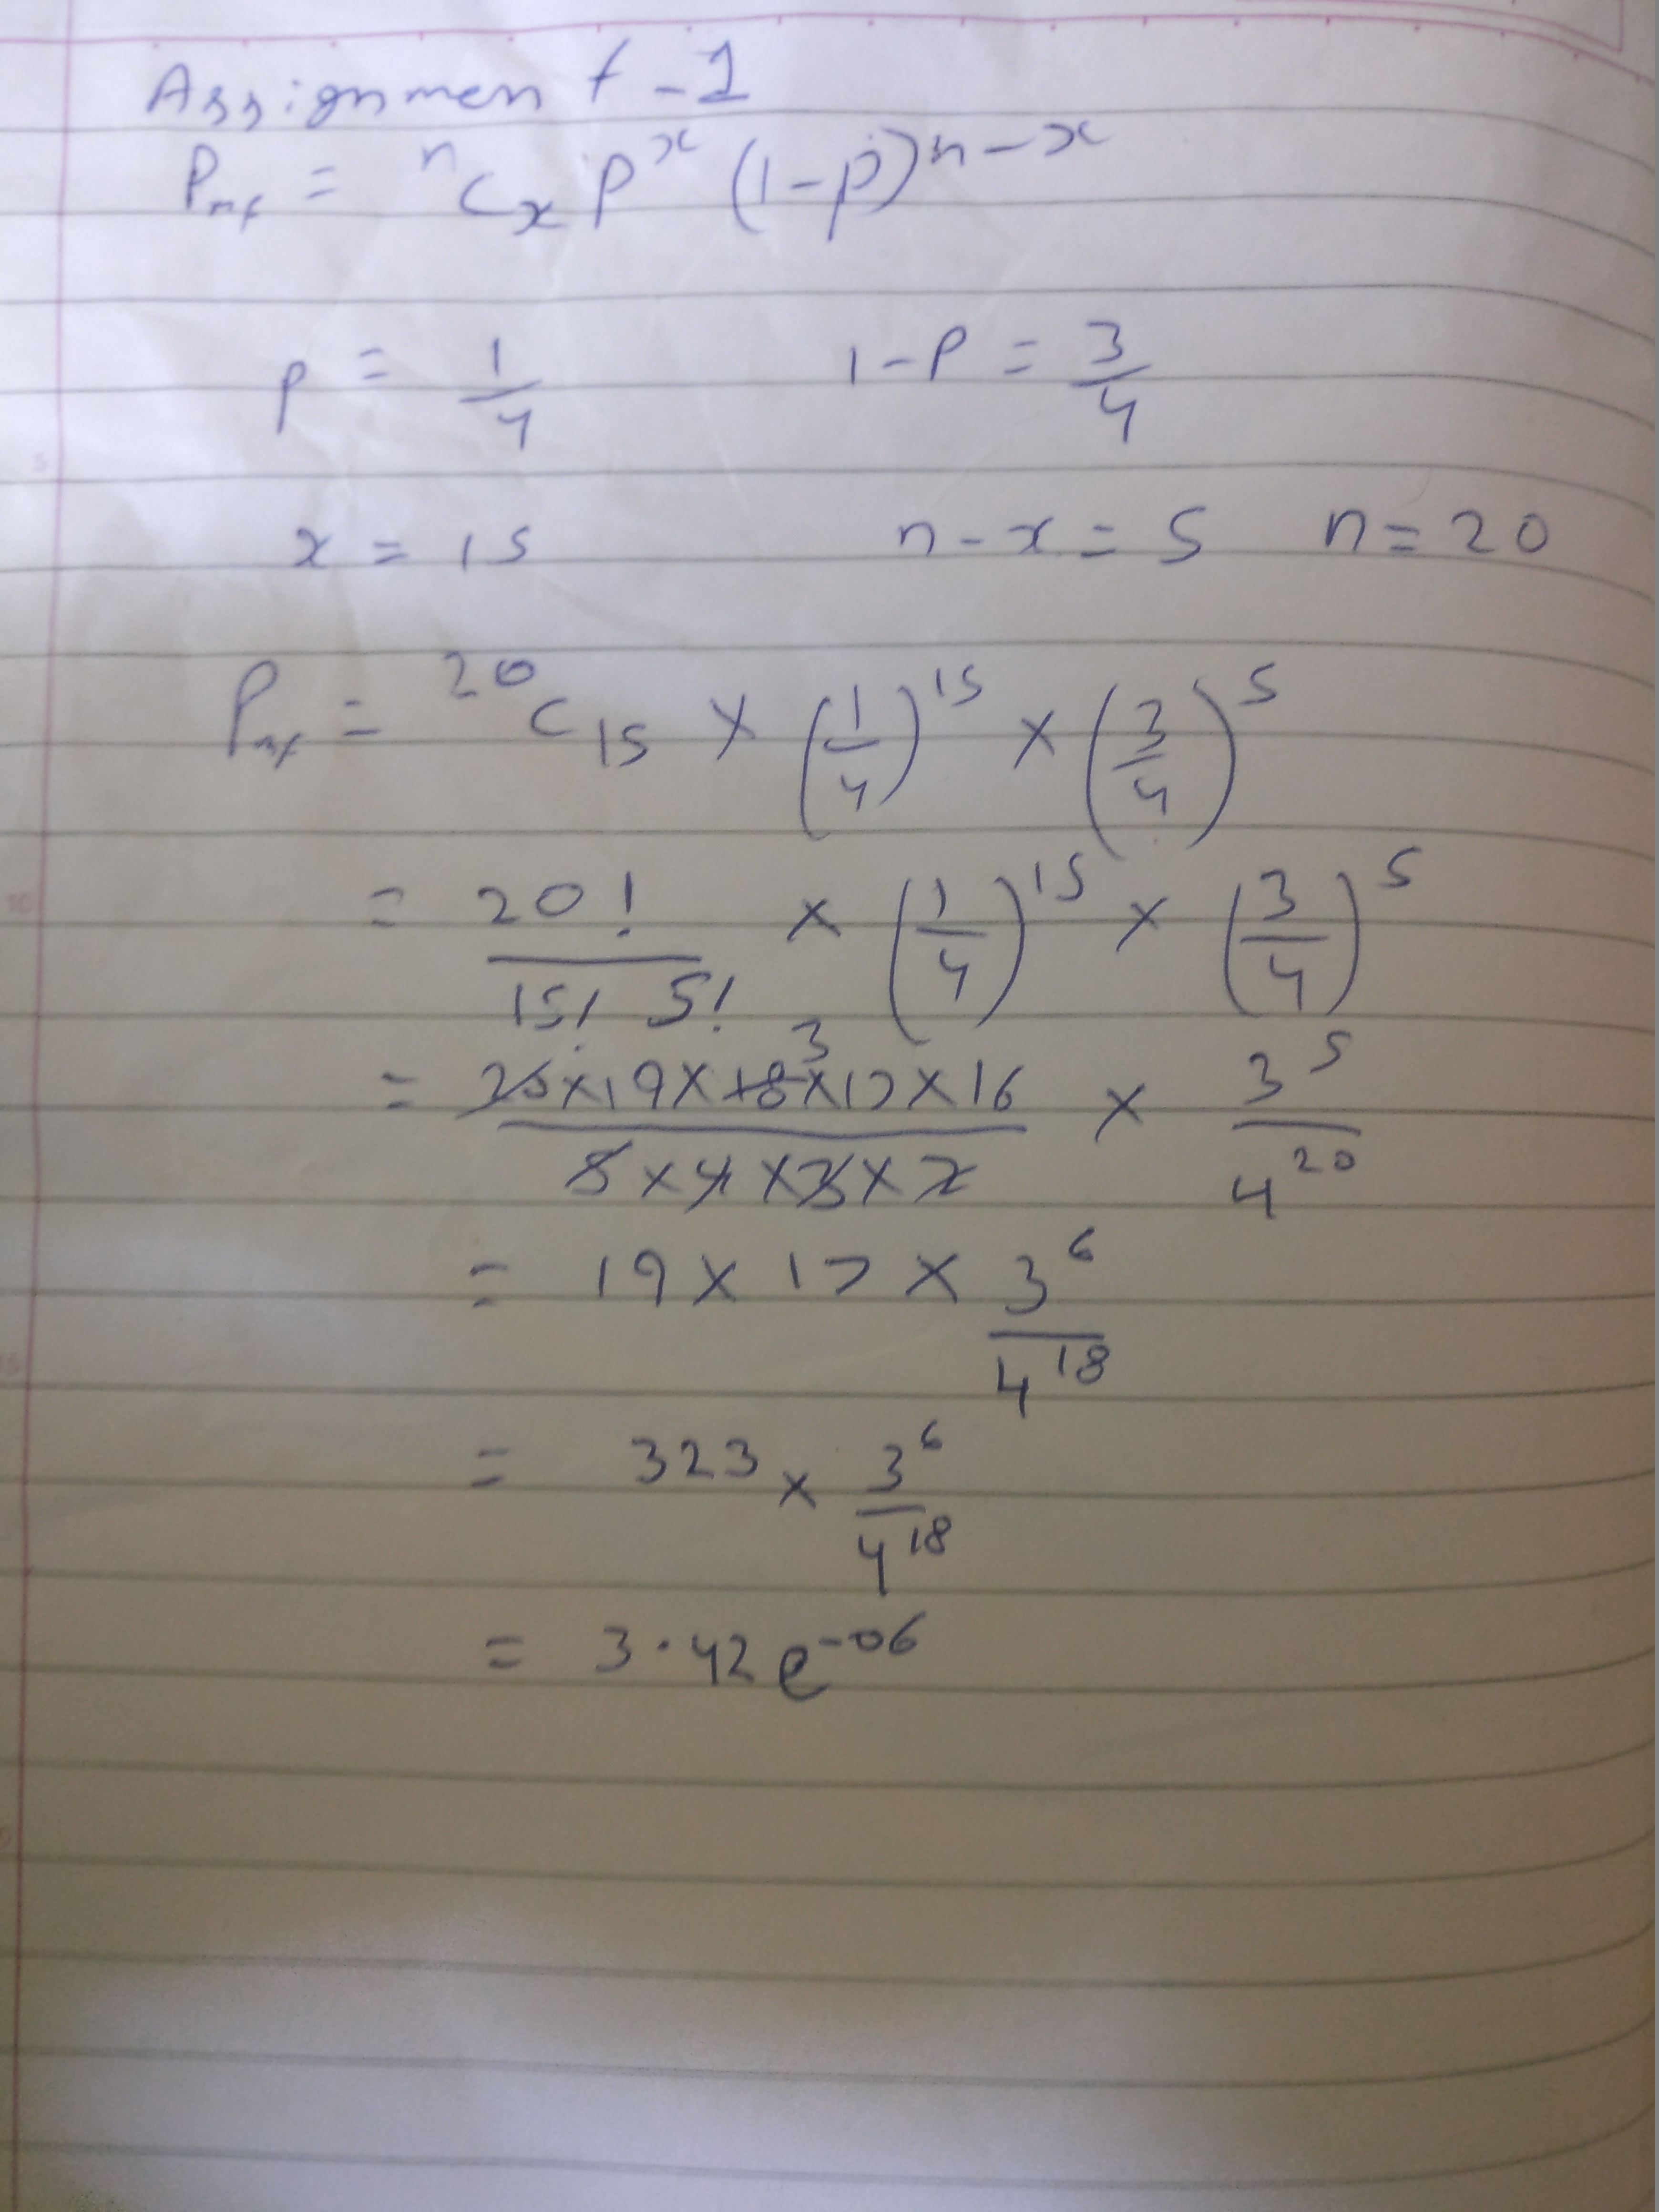 Assignment - 1
Pmf = ⁿCₓ pˣ (1-p)ⁿ⁻ˣ
p = 1/4 1-p = 3/4
x = 15 n-x = 5 n = 20
Pmf = ²⁰C₁₅ × (1/4)¹⁵ × (3/4)⁵
= 20!/15! 5! × (1/4)¹⁵ × (3/4)⁵
3
= 20×19×18×17×16/5×4×3×2 × 3⁵/4²⁰
= 19 × 17 × 3⁶/4¹⁸
= 323 × 3⁶/4¹⁸
= 3.42 e⁻⁰⁶
5
10
15